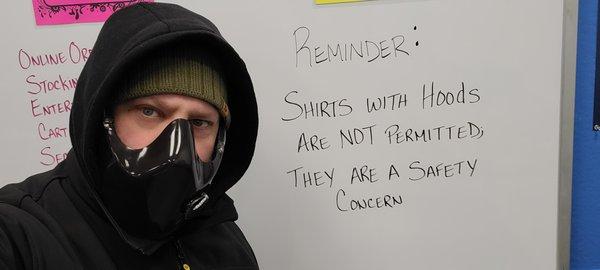 Online
Stocking
Reminder:
Shirts with Hoods
are not permitted;
They are a Safety
Concern